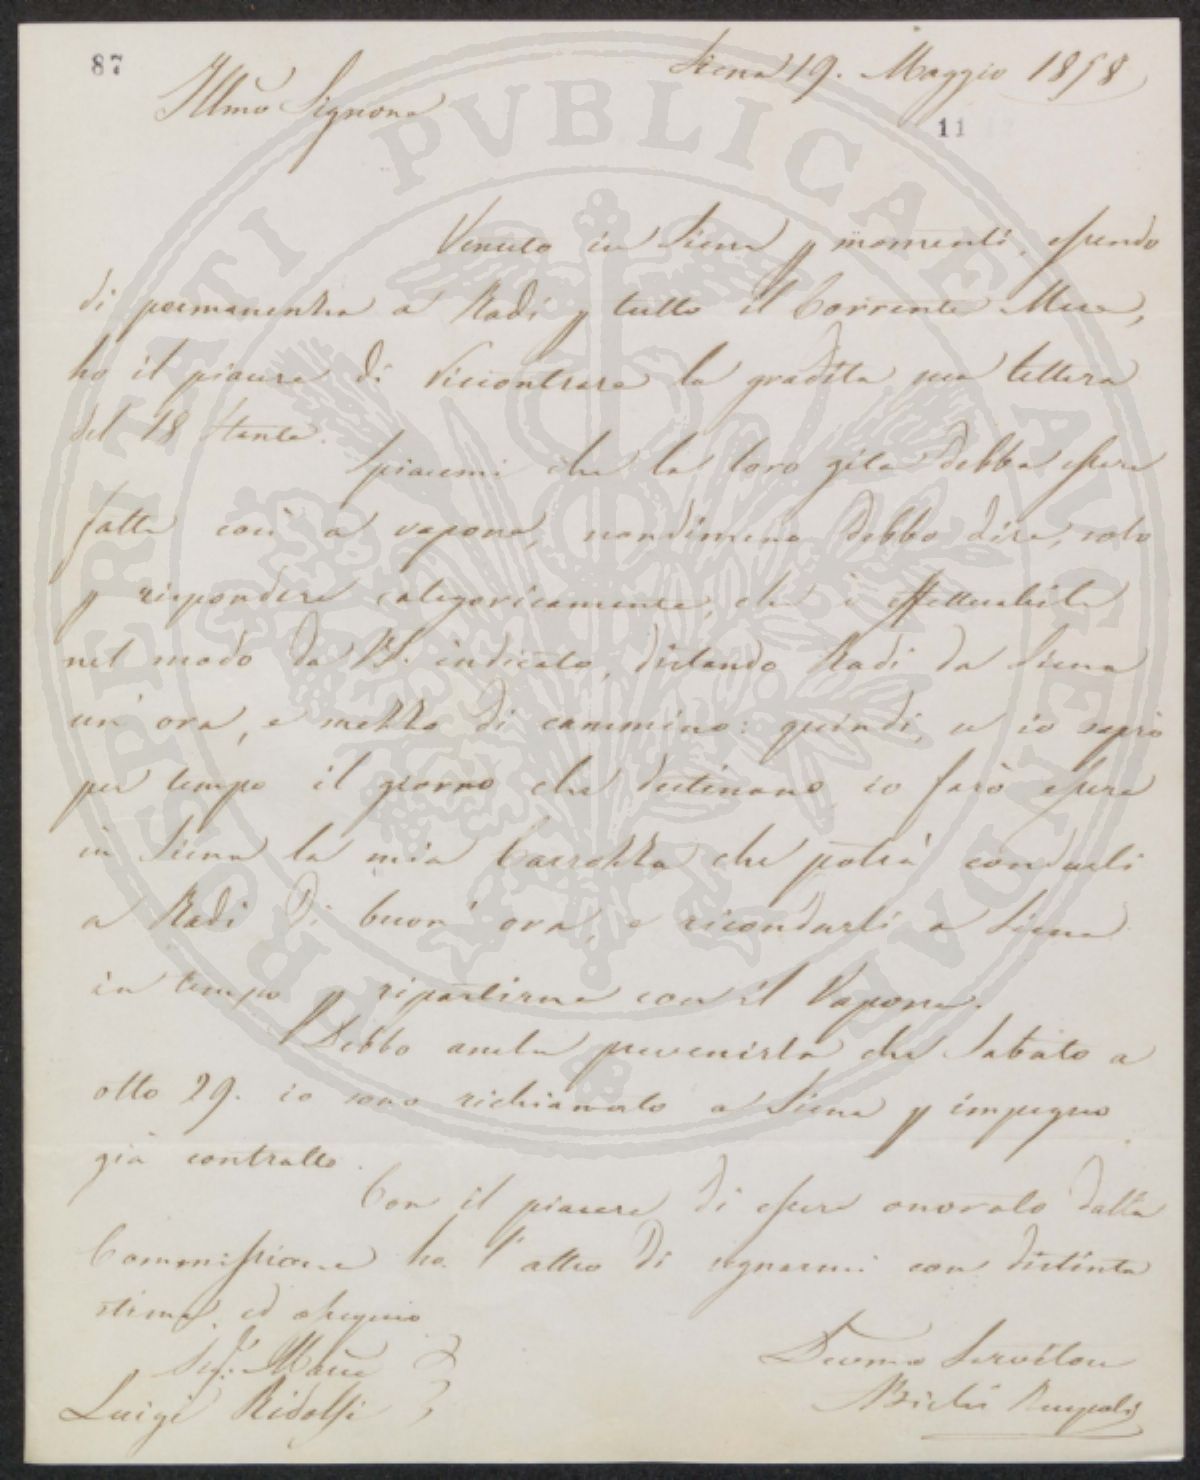 87
Siena 19. Maggio 1858
Illmo Signore
11
Venuto in Siena p momenti, essendo
di permanenza a Radi p tutto il Corrente Mese,
ho il piacere di riscontrare la gradita sua lettera
del 18 Stante.
Spiacemi che la loro gita debba essere
fatta così a vapore, nondimeno debbo dire, solo
p rispondere categoricamente, che è effettuabile
nel modo da VS. indicato, distando Radi da Siena
un' ora, e mezza di cammino: quindi, se io saprò
per tempo il giorno che destinano, io farò essere
in Siena la mia Carrozza che potrà condurli
a Radi di buon' ora, e ricondurli a Siena
in tempo p ripartirne con il Vapore.
Debbo anche prevenirla che Sabato a
otto 29. io sono richiamato a Siena p impegno
già contratto.
Con il piacere di essere onorato dalla
Commissione ho l' altro di segnarmi con distinta
stima, ed ossequio
Sig.r Marce
Luigi Ridolfi
Devmo Servitore
Bichi Ruspoli
PVBLICAE AVGENDAE
PROSPERITATI